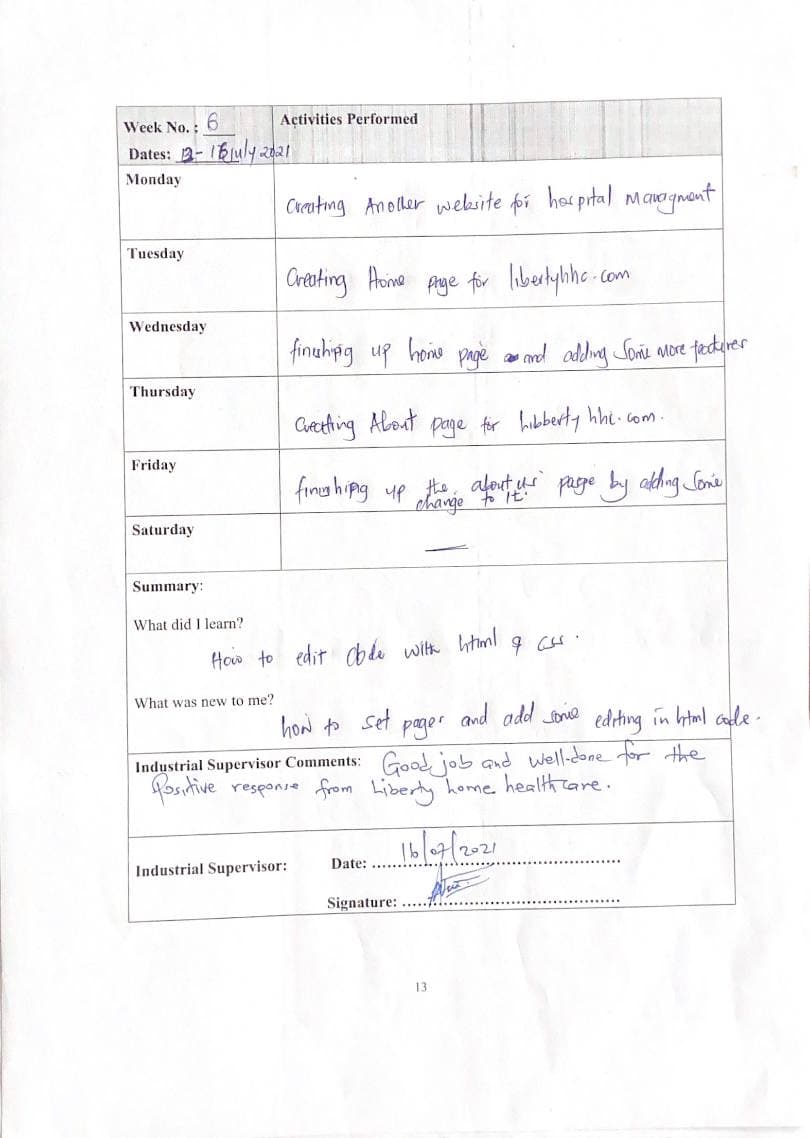 Week No. : 6
Activities Performed
Dates: 12 - 16 July 2021
Monday
Creating Another website for hospital Managment
Tuesday
Creating Home page for libertyhhc.com
Wednesday
finishipg up home page and adding Some More features
Thursday
Creating About page for Libberty hhc.com.
Friday
finishipg up the about us page by adding Some
change to it.
Saturday
—
Summary:
What did I learn?
How to edit Code with html & css.
What was new to me?
how to set pages and add some editing in html code.
Industrial Supervisor Comments: Good job and well-done for the
Positive response from Liberty home healthcare.
Industrial Supervisor:
Date: 16/07/2021
Signature:
13